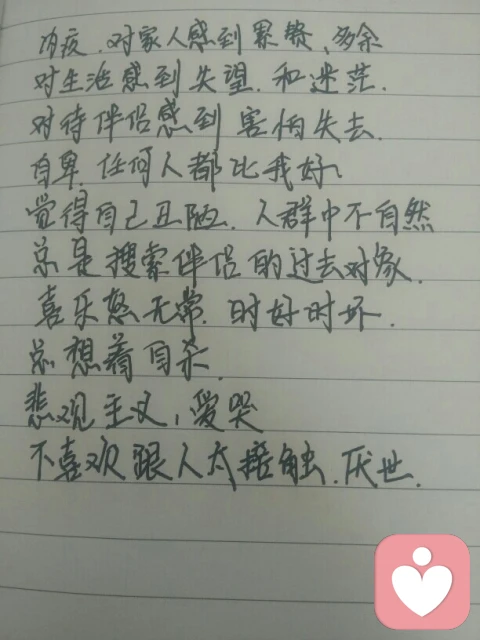 内疚.对家人感到累赘,多余
对生活感到失望.和迷茫.
对待伴侣感到害怕失去.
自卑.任何人都比我好、
觉得自己丑陋.人群中不自然
总是搜索伴侣的过去对象.
喜乐怒无常.时好时坏.
总想着自杀.
悲观主义,爱哭
不喜欢跟人太接触.厌世.